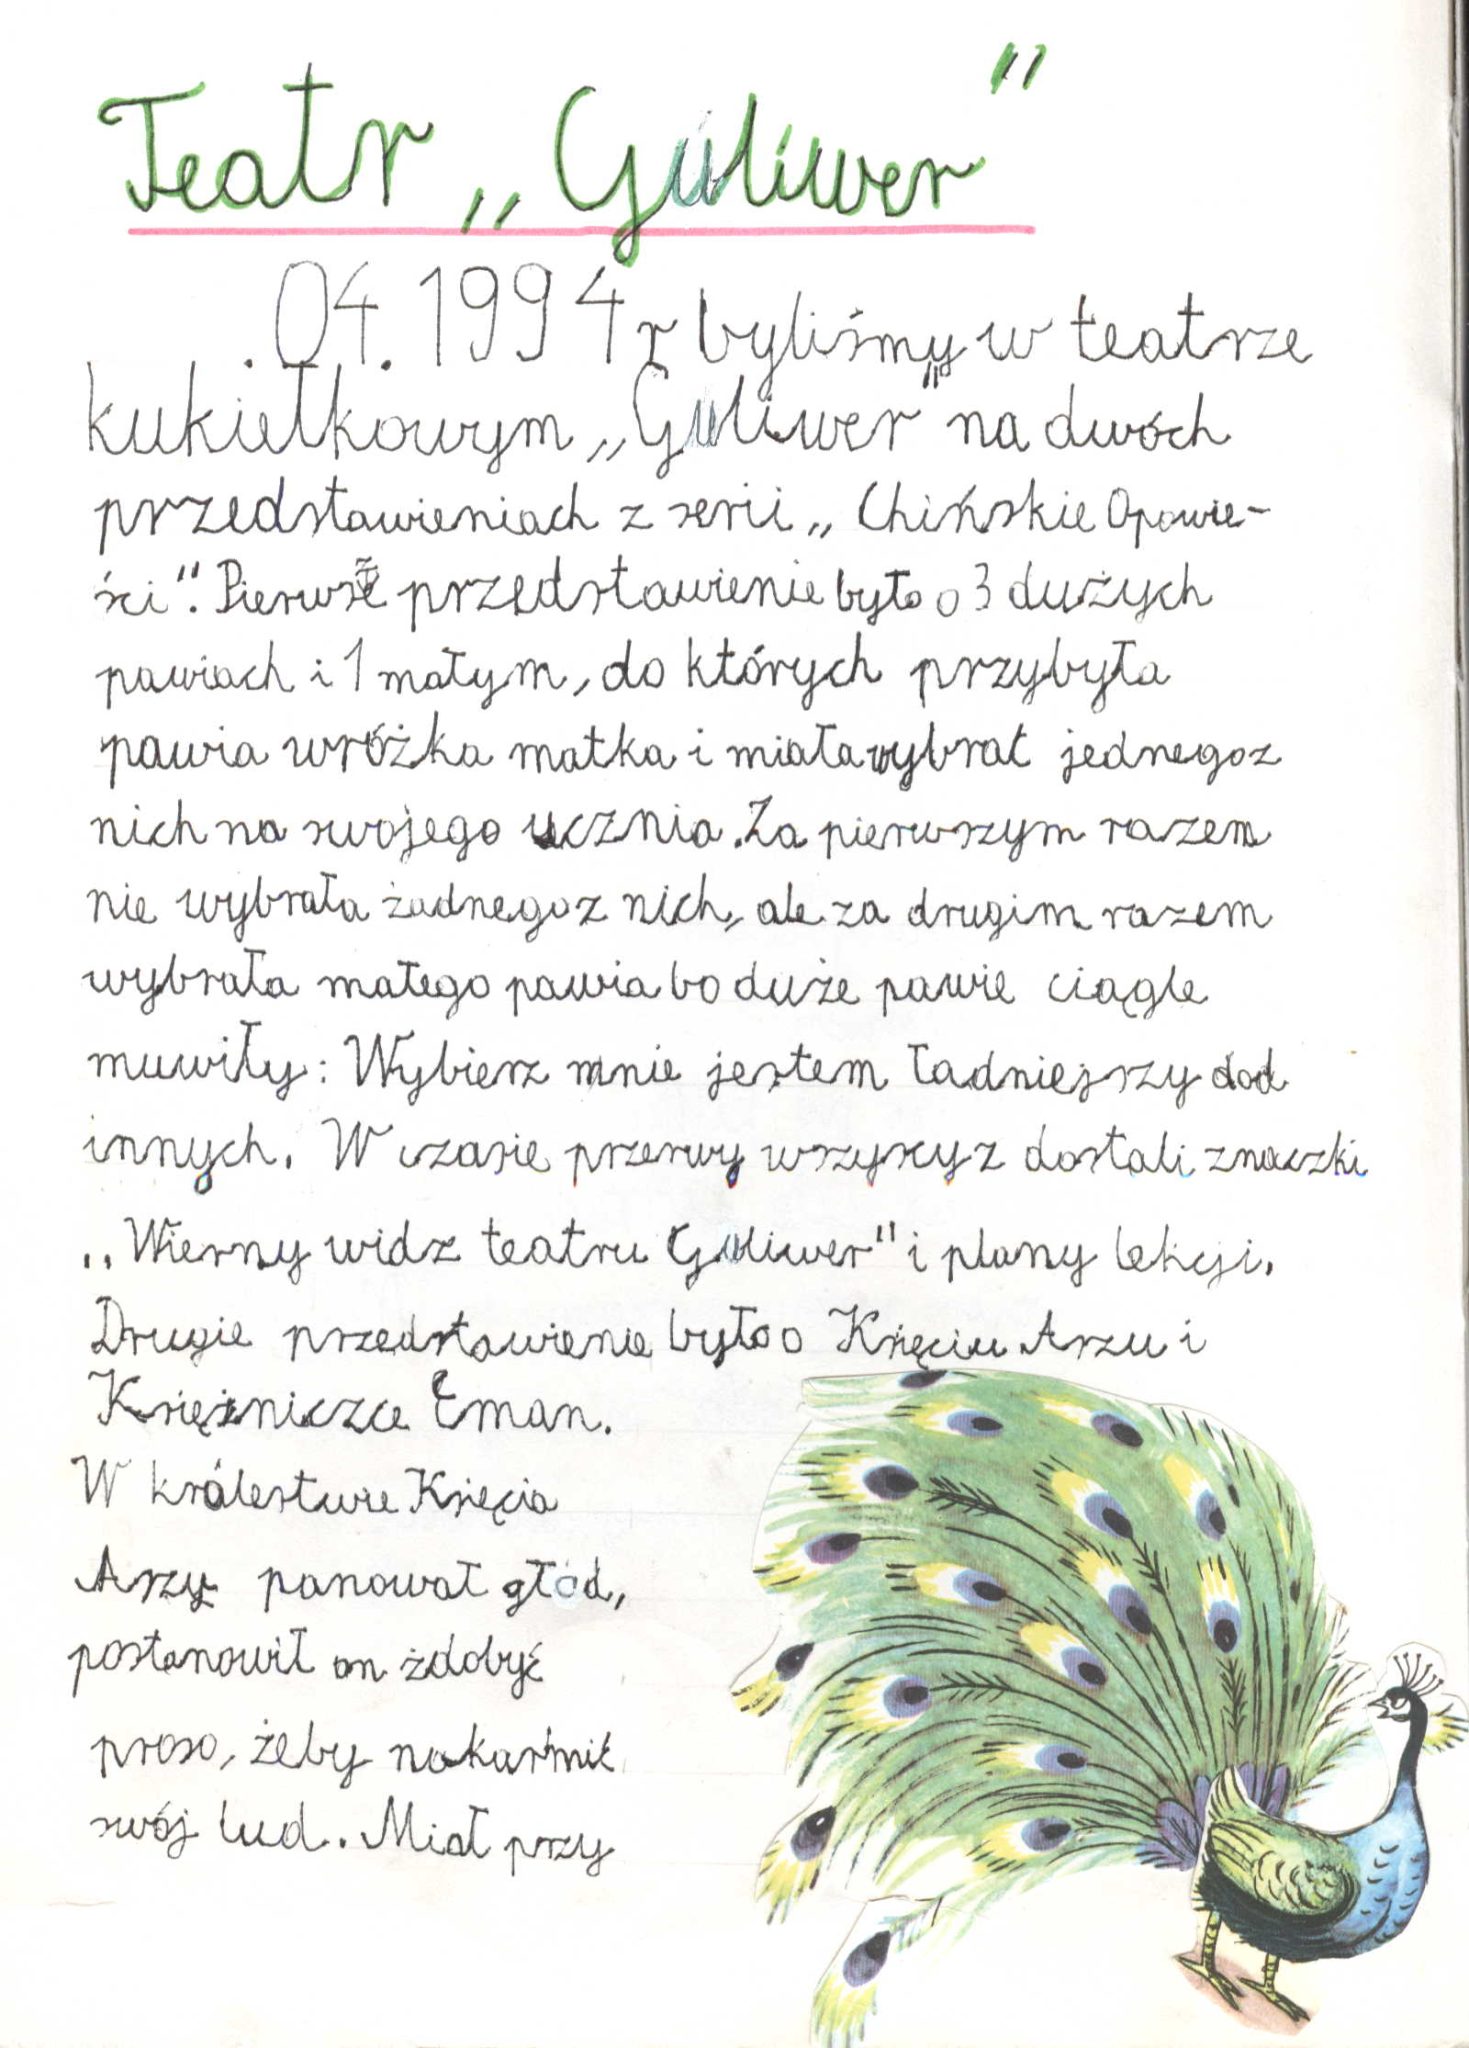 Teatr „Guliwer"
.04.1994 r byliśmy w teatrze
kukiełkowym „Guliwer" na dwóch
przedstawieniach z serii „Chińskie Opowie-
ści". Pierwsze przedstawienie było o 3 dużych
pawiach i 1 małym, do których przybyła
pawia wróżka matka i miała wybrać jednego z
nich na swojego ucznia. Za pierwszym razem
nie wybrała żadnego z nich, ale za drugim razem
wybrała małego pawia bo duże pawie ciągle
muwiły: Wybierz mnie jestem ładniejszy od
innych. W czasie przerwy wszyscy z dostali znaczki
„Wierny widz teatru Guliwer" i plany lekcji.
Drugie przedstawienie było o Księciu Arzu i
Księżniczce Eman.
W królestwie Księcia
Arzy panował głód,
postanowił on żdobyć
proso, żeby nakarmić
swój lud. Miał przy